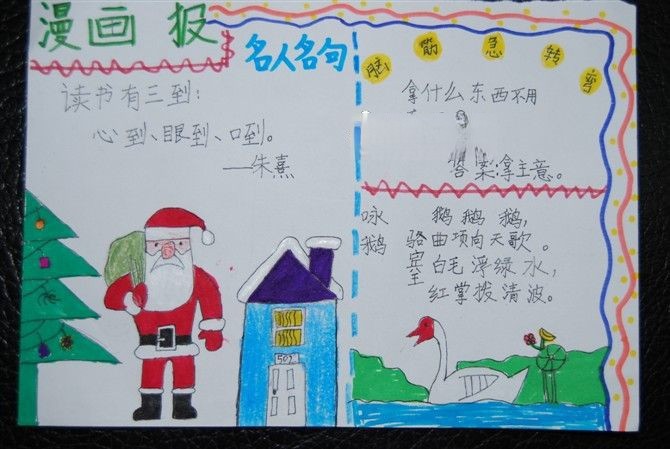 漫画报
名人名句
读书有三到:
心到、眼到、口到。
——朱熹
507
脑筋急转弯
拿什么东西不用
答案:拿主意。
咏鹅
骆宾王
鹅鹅鹅,
曲项向天歌。
白毛浮绿水,
红掌拨清波。